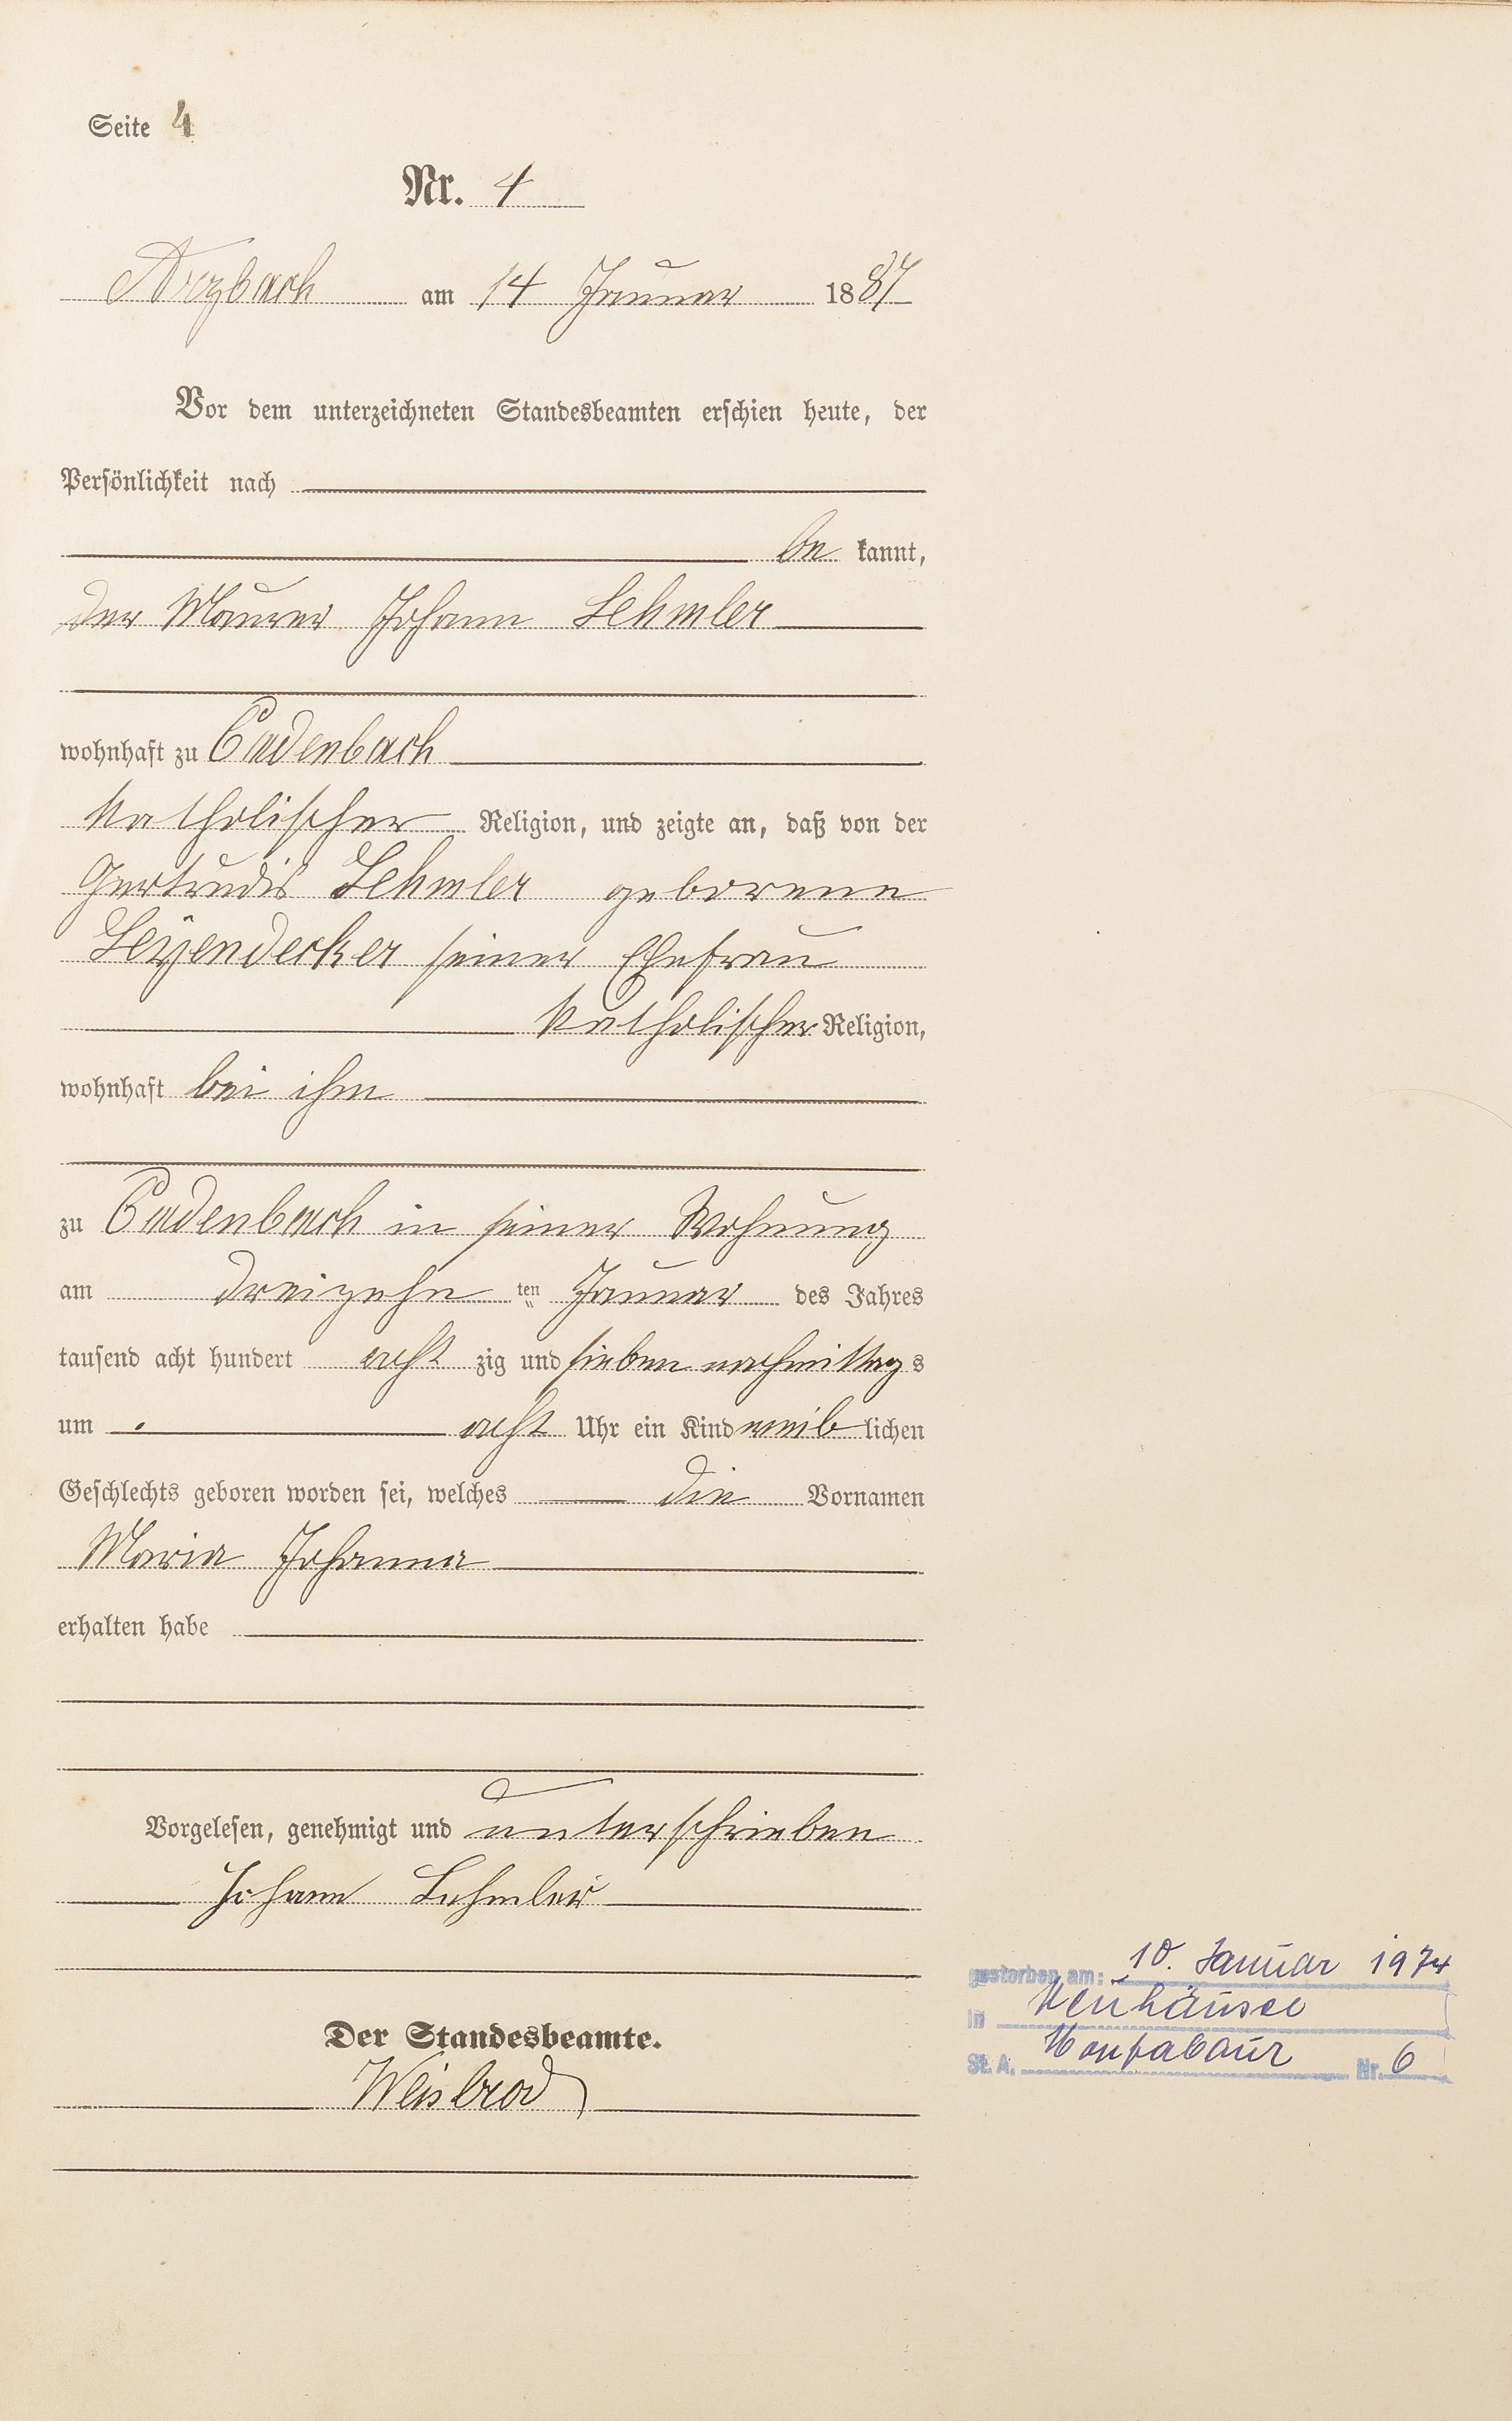 Seite 4
Nr. 4
Arzbach am 14 Januar 1887
Vor dem unterzeichneten Standesbeamten erschien heute, der
Persönlichkeit nach
be kannt,
der Maurer Johann Lehmler
wohnhaft zu Cadenbach
katholischer Religion, und zeigte an, daß von der
Gertrudis Lehmler geborene
Leÿendecker seiner Ehefrau
katholischer Religion,
wohnhaft bei ihm
zu Cadenbach in seiner Wohnung
am dreizehn ten Januar des Jahres
tausend acht hundert acht zig und sieben nachmittags
um acht Uhr ein Kind weib lichen
Geschlechts geboren worden sei, welches die Vornamen
Maria Johanna
erhalten habe
Vorgelesen, genehmigt und unterschrieben
Johann Lehmler
Der Standesbeamte.
Weisbrod
gestorben am: 10. Januar 1974
in Neuhäusel
St. A. Montabaur Nr. 6